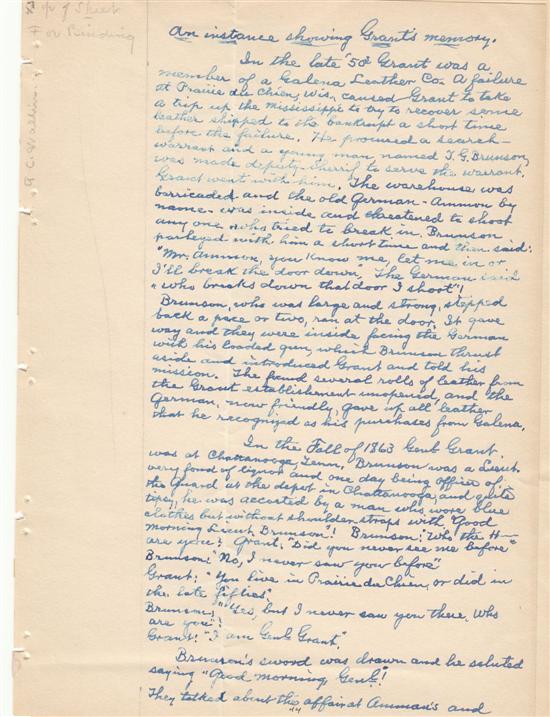 of Sheet
For Building
An instance showing Grant's memory.
In the late '50s Grant was a
member of a Galena Leather Co. A failure
at Prairie du Chien, Wis., caused Grant to take
a trip up the Mississippi to try to recover some
leather shipped to the bankrupt a short time
before the failure. He procured a search-
warrant and a young man named T.G. Brunson,
was made deputy-sheriff to serve the warrant.
Grant went with him. The warehouse was
barricaded and the old German - Ammon by
name - was inside and threatened to shoot
any one who tried to break in. Brunson
parleyed with him a short time and then said:
"Mr. Ammon, you know me, let me in or
I'll break the door down". The German said
"Who breaks down that door I shoot"!
Brunson, who was large and strong, stepped
back a pace or two, ran at the door. It gave
way and they were inside facing the German
with his loaded gun, which Brunson thrust
aside and introduced Grant and told his
mission. The found several rolls of leather from
the Grant establishment unopened, and the
German, now friendly, gave up all leather
that he recognized as his purchases from Galena.
In the Fall of 1863 Genl. Grant
was at Chattanooga, Tenn. Brunson was a Lieut.
very fond of liquor and one day being officer of
the guard at the depot in Chattanooga, and quite
tipsy, he was accosted by a man who wore blue
clothes but without shoulder straps with "Good
morning Lieut. Brunson"! Brunson: "Who the H—
are you?" Grant: "Did you never see me before"
Brunson: "No, I never saw you before"
Grant: "You live in Prairie du Chien, or did in
the late fifties".
Brunson: "Yes, but I never saw you there. Who
are you"?
Grant: "I am Genl. Grant".
Brunson's sword was drawn and he saluted
saying "Good morning, Genl."!
They talked about the affair at Ammon's and